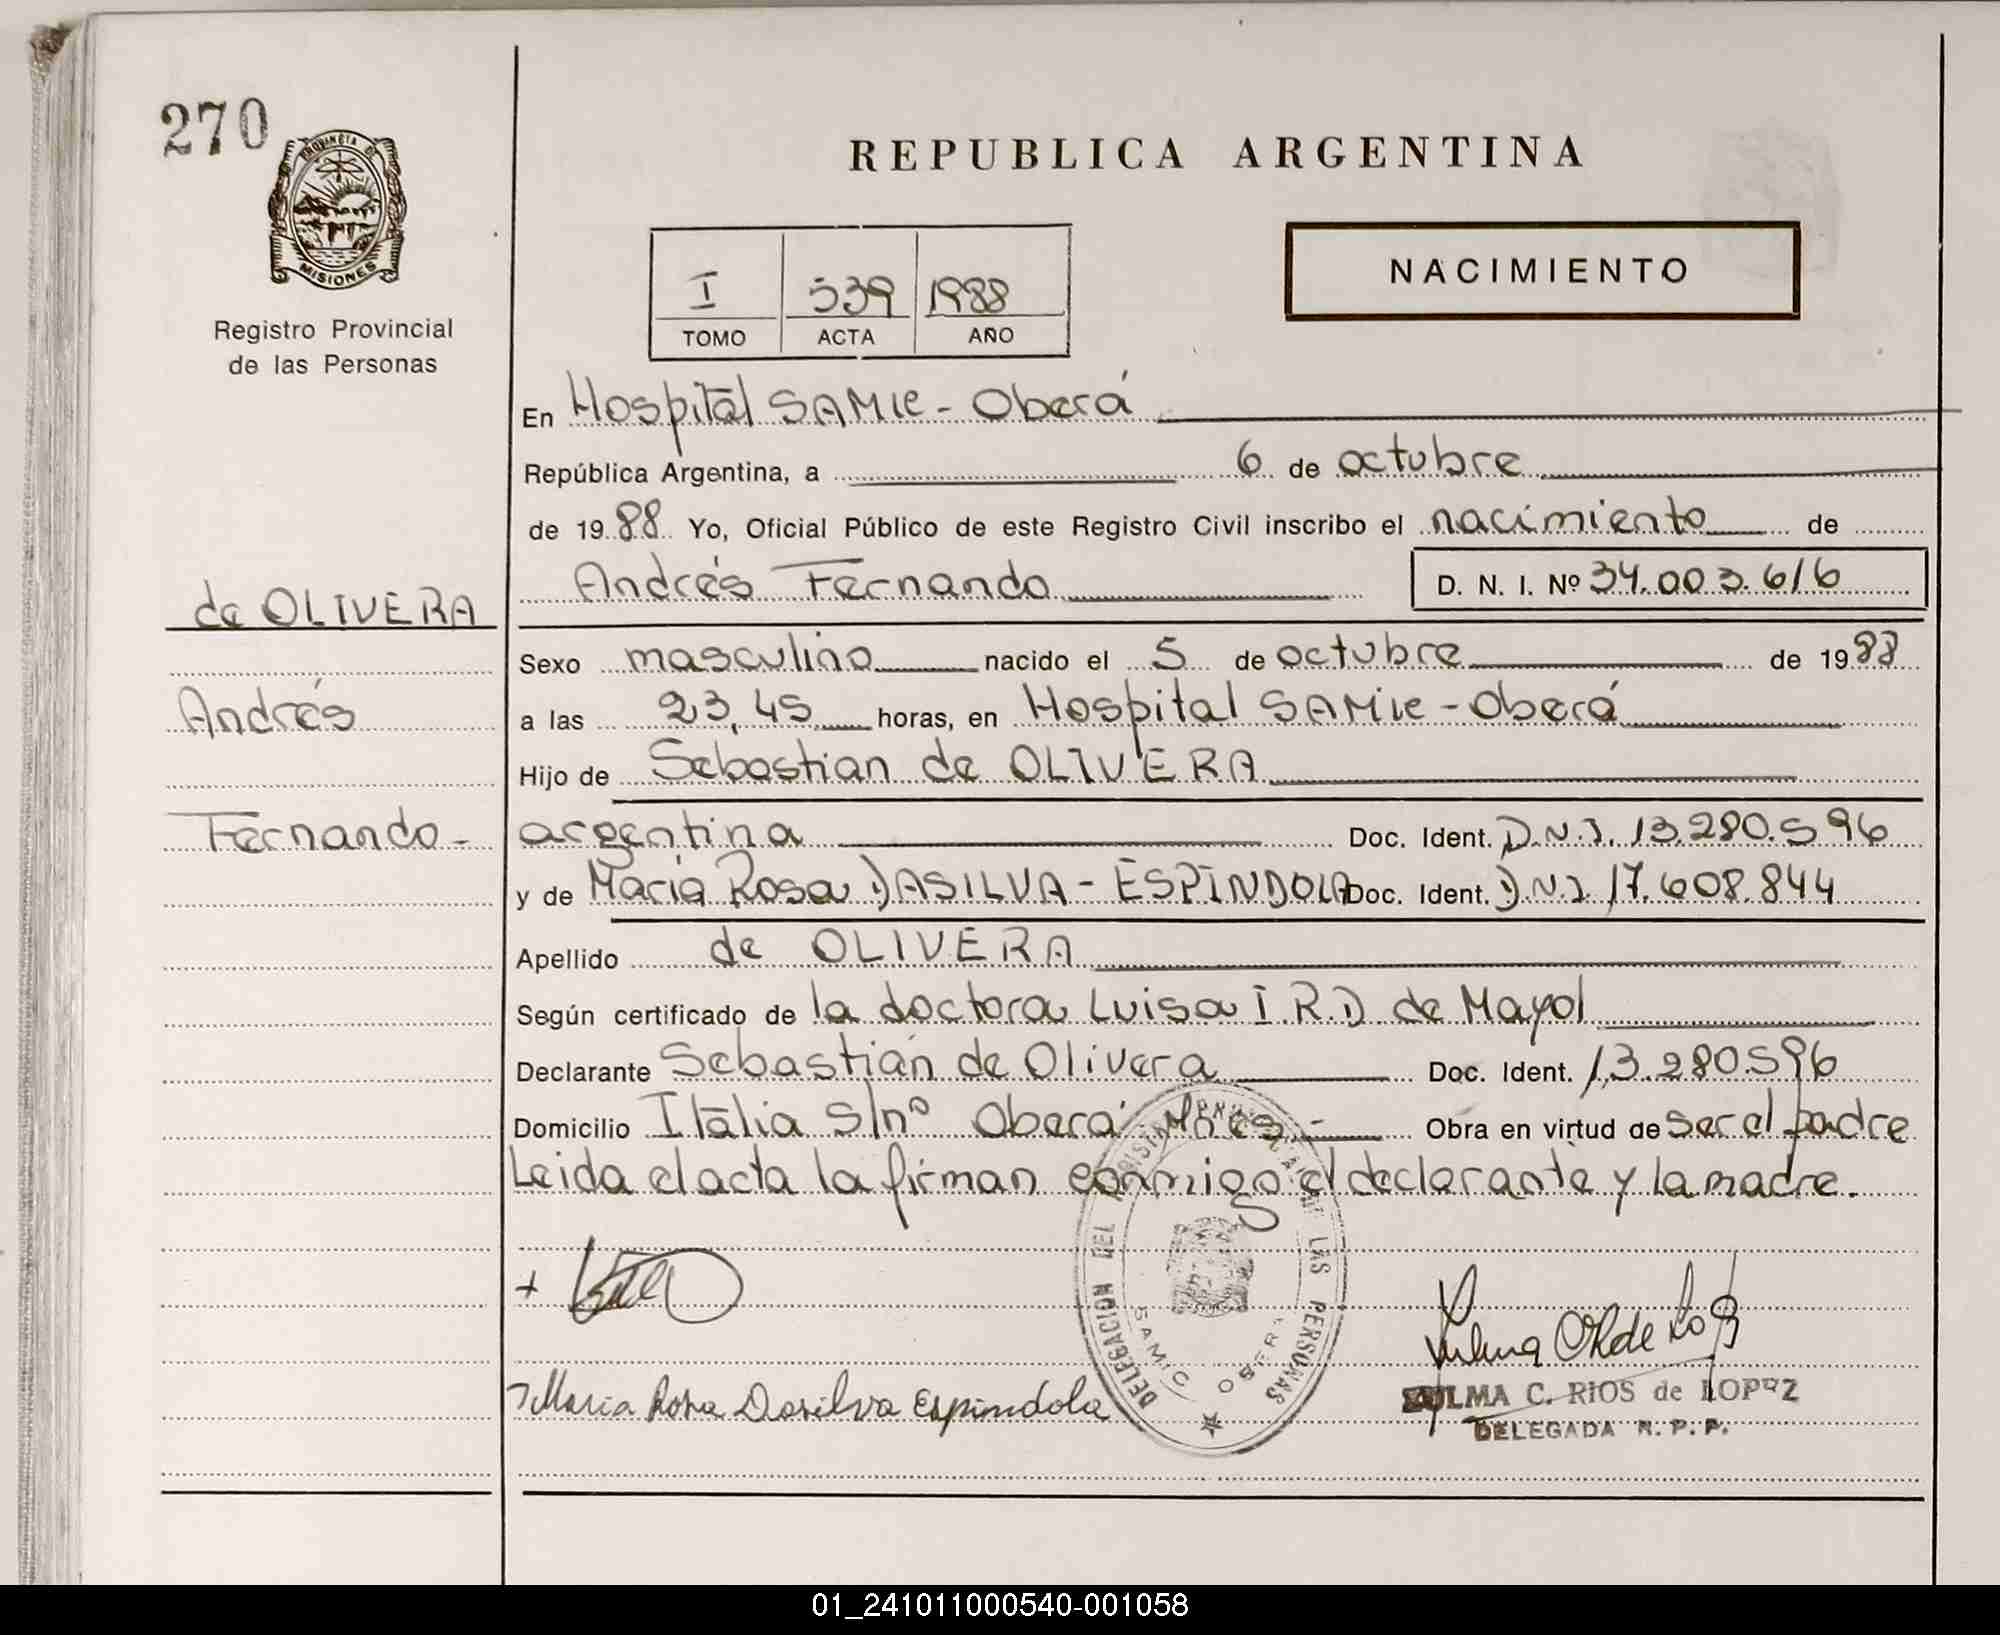 270
PROVINCIA DE
MISIONES
Registro Provincial
de las Personas
REPUBLICA ARGENTINA
NACIMIENTO
I 539 1988
TOMO ACTA AÑO
En Hospital SAMIC - Oberá
República Argentina, a 6 de octubre
de 1988 Yo, Oficial Público de este Registro Civil inscribo el nacimiento de
Andrés Fernando D. N. I. Nº 34.003.616
de OLIVERA
Andrés
Fernando -
Sexo masculino nacido el 5 de octubre de 1988
a las 23,45 horas, en Hospital SAMic - Oberá
Hijo de Sebastian de OLIVERA
argentina Doc. Ident. D.N.I. 13.280.596
y de María Rosa DASILVA - ESPINDOLA Doc. Ident. D.N.I. 17.608.844
Apellido de OLIVERA
Según certificado de la doctora Luisa I.R.D de Mayol
Declarante Sebastián de Olivera Doc. Ident. 13.280596
Domicilio Itália S/nº Oberá Mnes - Obra en virtud de ser el padre
Leida el acta la firman conmigo el declarante y la madre.
DELEGACION DEL REGISTRO PROVINCIAL DE LAS PERSONAS
SAMIC OBERA
Maria Rosa Dasilva Espindola
ZULMA C. RIOS de LOPEZ
DELEGADA R. P. P.
01_241011000540-001058